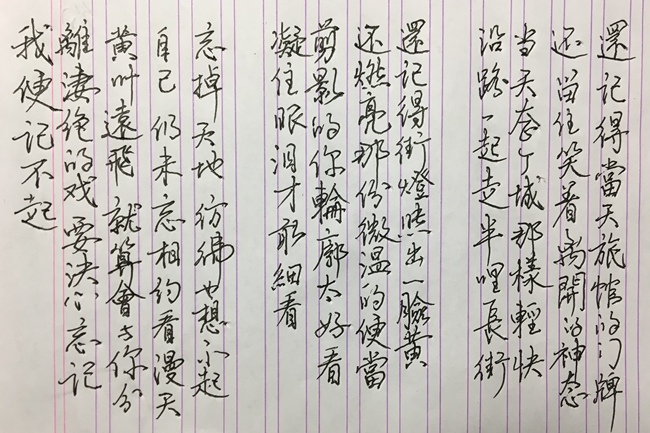 還記得當天旅馆的门牌
还留住笑着離開的神态
当天整个城那樣輕快
沿路一起走半哩長街
還記得街燈照出一臉黄
还燃亮那份微温的便當
剪影的你輪廓太好看
凝住眼泪才敢細看
忘掉天地彷彿也想不起
自己仍未忘相約看漫天
黄叶遠飛就算會与你分
離凄绝的戏要决心忘記
我便記不起